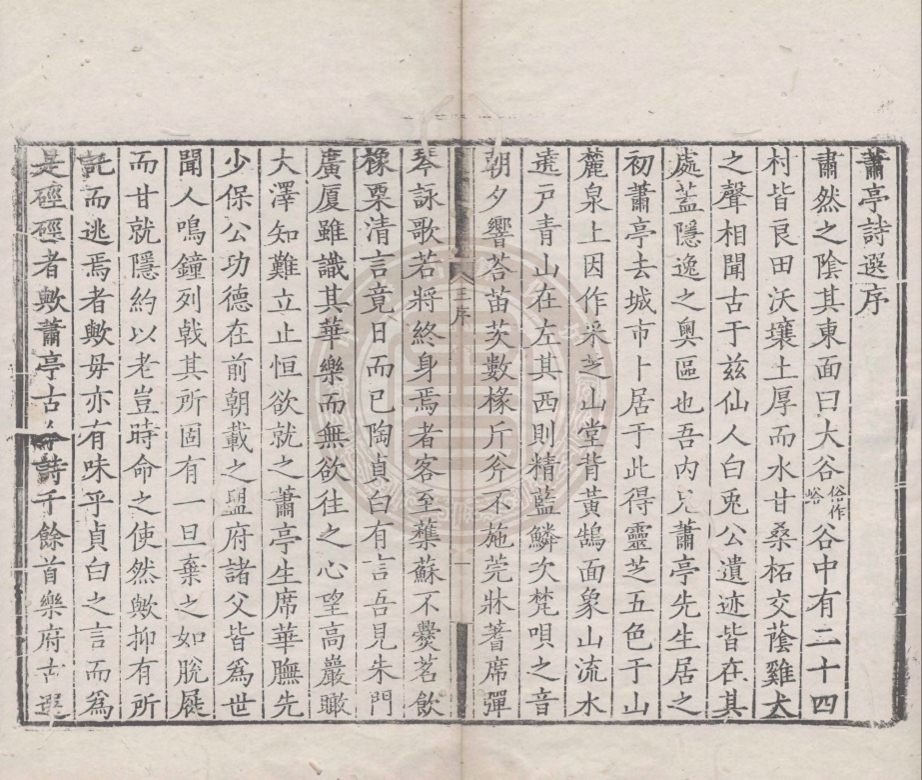 蕭亭詩選序
肅然之陰其東面曰大谷俗作峪谷中有二十四
村皆良田沃壤土厚而水甘桑柘交蔭雞犬
之聲相聞古于茲仙人白兎公遺迹皆在其
處蓋隱逸之奧區也吾内兄蕭亭先生居之
初蕭亭去城市卜居于此得靈芝五色于山
麓泉上因作采芝山堂背黃鵠面象山流水
遶戸青山在左其西則精藍鱗次梵唄之音
朝夕響荅苗茨數椽斤斧不施莞牀蓍席彈
三序
一
琴詠歌若將終身焉者客至蕉蘇不爨茗飲
橡栗清言竟日而已陶貞白有言吾見朱門
廣厦雖識其華樂而無欲往之心望高巖瞰
大澤知難立止恒欲就之蕭亭生席華膴先
少保公功德在前朝載之盟府諸父皆爲世
聞人鳴鐘列戟其所固有一旦棄之如脫屣
而甘就隱約以老豈時命之使然歟抑有所
託而逃焉者歟毋亦有味乎貞白之言而爲
是硜硜者歟蕭亭古今詩千餘首樂府古選